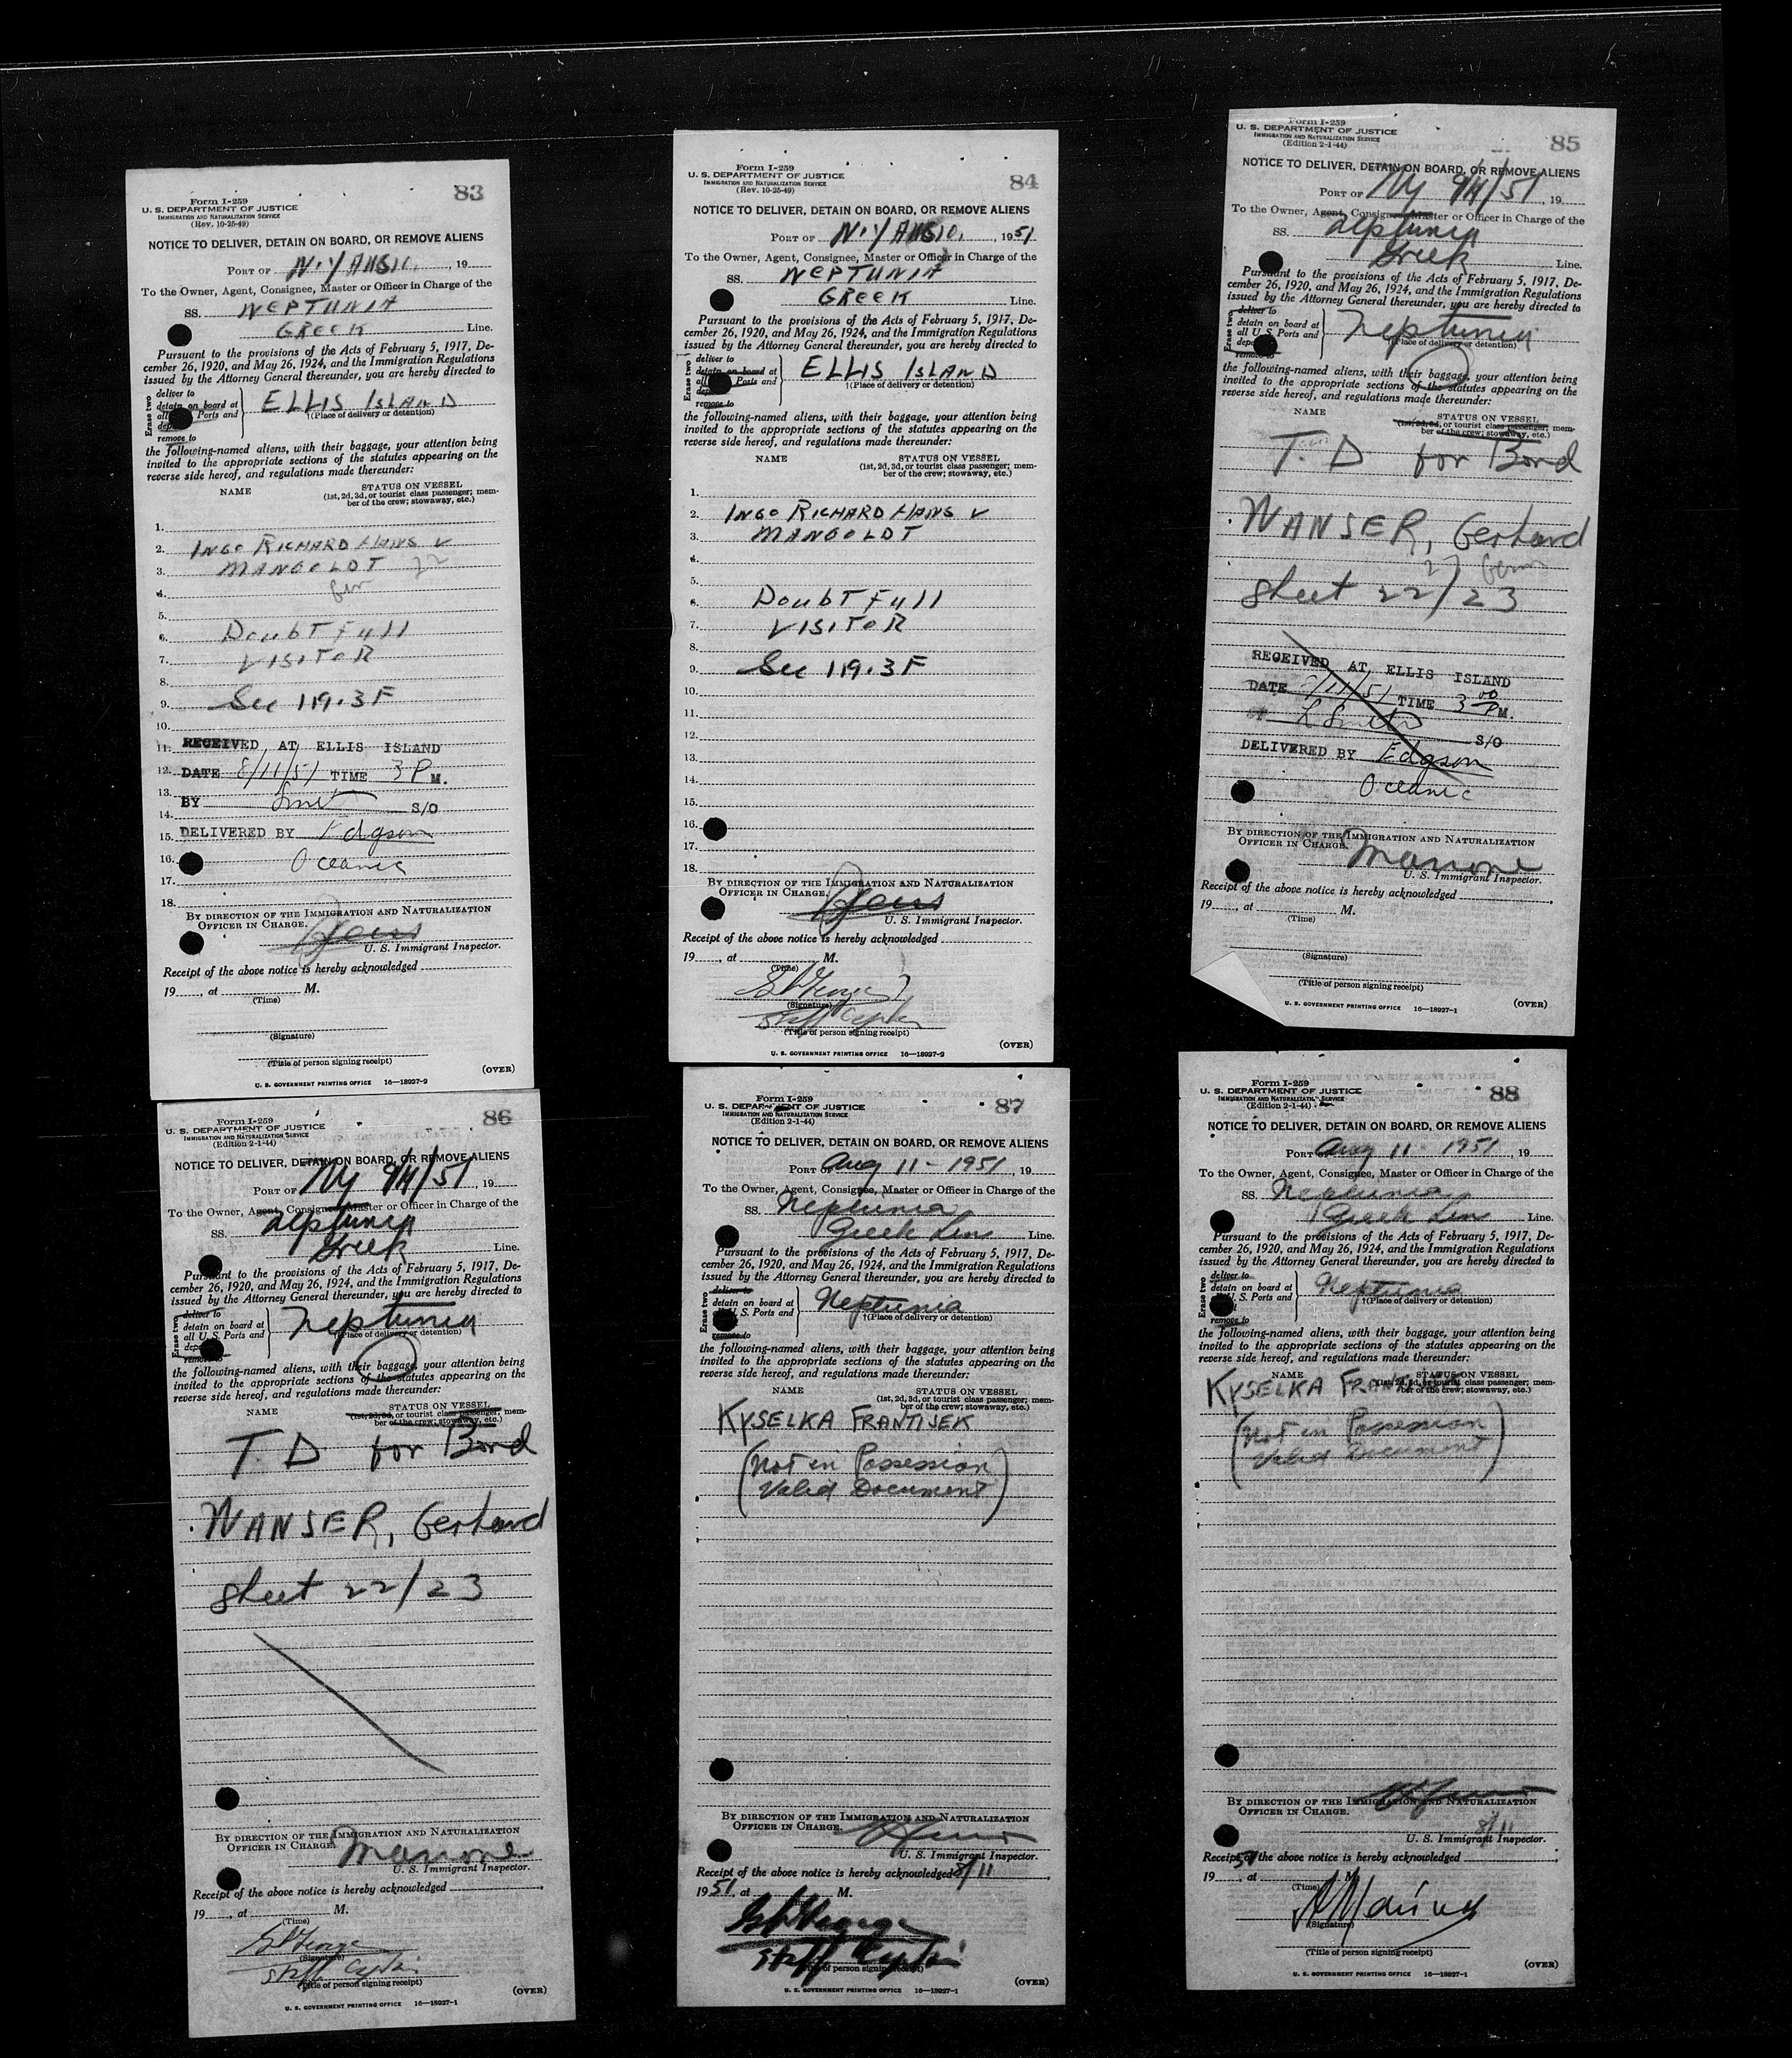 83
Form I-259
U. S. DEPARTMENT OF JUSTICE
IMMIGRATION AND NATURALIZATION SERVICE
(Rev. 10-25-49)
NOTICE TO DELIVER, DETAIN ON BOARD, OR REMOVE ALIENS
PORT OF N.Y AUG , 19
To the Owner, Agent, Consignee, Master or Officer in Charge of the
SS. NEPTUNIA
GREEK Line.
Pursuant to the provisions of the Acts of February 5, 1917, De-
cember 26, 1920, and May 26, 1924, and the Immigration Regulations
issued by the Attorney General thereunder, you are hereby directed to
Erase two
deliver to
detain on board at
all Ports and
remove to
ELLIS ISLAND
†(Place of delivery or detention)
the following-named aliens, with their baggage, your attention being
invited to the appropriate sections of the statutes appearing on the
reverse side hereof, and regulations made thereunder:
NAME STATUS ON VESSEL
(1st, 2d, 3d, or tourist class passenger; mem-
ber of the crew; stowaway, etc.)
1.
2. INGO RICHARD HANS V
3. MANGOLDT 22
4. Ger
5.
6. DOUBTFULL
7. VISITOR
8.
9. Sec 119.3F
10.
11. RECEIVED AT ELLIS ISLAND
12. DATE 8/11/51 TIME 3 P M.
13.
BY S/O
14.
15. DELIVERED BY Edgson
16. Oceanic
17.
18.
BY DIRECTION OF THE IMMIGRATION AND NATURALIZATION
OFFICER IN CHARGE.
U. S. Immigrant Inspector.
Receipt of the above notice is hereby acknowledged
19 , at M.
(Time)
(Signature)
(Title of person signing receipt)
(OVER)
U. S. GOVERNMENT PRINTING OFFICE 16—18927-2
84
Form I-259
U. S. DEPARTMENT OF JUSTICE
IMMIGRATION AND NATURALIZATION SERVICE
(Rev. 10-25-49)
NOTICE TO DELIVER, DETAIN ON BOARD, OR REMOVE ALIENS
PORT OF N.Y AUG 10, , 1951
To the Owner, Agent, Consignee, Master or Officer in Charge of the
SS. NEPTUNIA
GREEK Line.
Pursuant to the provisions of the Acts of February 5, 1917, De-
cember 26, 1920, and May 26, 1924, and the Immigration Regulations
issued by the Attorney General thereunder, you are hereby directed to
Erase two
deliver to
detain on board at
all Ports and
remove to
ELLIS ISLAND
†(Place of delivery or detention)
the following-named aliens, with their baggage, your attention being
invited to the appropriate sections of the statutes appearing on the
reverse side hereof, and regulations made thereunder:
NAME STATUS ON VESSEL
(1st, 2d, 3d, or tourist class passenger; mem-
ber of the crew; stowaway, etc.)
1.
2. INGO RICHARD HANS V
3. MANGOLDT
4.
5.
6. DOUBTFULL
7. VISITOR
8.
9. Sec 119.3F
10.
11.
12.
13.
14.
15.
16.
17.
18.
BY DIRECTION OF THE IMMIGRATION AND NATURALIZATION
OFFICER IN CHARGE.
U. S. Immigrant Inspector.
Receipt of the above notice is hereby acknowledged
19 , at M.
(Time)
(Signature)
Staff Captain
(Title of person signing receipt)
(OVER)
U. S. GOVERNMENT PRINTING OFFICE 16—18927-2
85
Form I-259
U. S. DEPARTMENT OF JUSTICE
IMMIGRATION AND NATURALIZATION SERVICE
(Edition 2-1-44)
NOTICE TO DELIVER, DETAIN ON BOARD, OR REMOVE ALIENS
PORT OF NY 8/11/51 , 19
To the Owner, Agent, Consignee, Master or Officer in Charge of the
SS. Neptunia
Greek Line.
Pursuant to the provisions of the Acts of February 5, 1917, De-
cember 26, 1920, and May 26, 1924, and the Immigration Regulations
issued by the Attorney General thereunder, you are hereby directed to
Erase two
deliver to
detain on board at
all U. S. Ports and
remove to
Neptunia
†(Place of delivery or detention)
the following-named aliens, with their baggage, your attention being
invited to the appropriate sections of the statutes appearing on the
reverse side hereof, and regulations made thereunder:
NAME STATUS ON VESSEL
(1st, 2d, 3d, or tourist class passenger; mem-
ber of the crew; stowaway, etc.)
T. D for Bond
WANSER, Gerhard
27 Germ
sheet 22/23
RECEIVED AT ELLIS ISLAND
DATE 8/11/51 TIME 3 00 P M.
L Smith S/O
DELIVERED BY Edgson
Oceanic
BY DIRECTION OF THE IMMIGRATION AND NATURALIZATION
OFFICER IN CHARGE.
Marrone
U. S. Immigrant Inspector.
Receipt of the above notice is hereby acknowledged
19 , at M.
(Time)
(Signature)
(Title of person signing receipt)
(OVER)
U. S. GOVERNMENT PRINTING OFFICE 16—18927-1
86
Form I-259
U. S. DEPARTMENT OF JUSTICE
IMMIGRATION AND NATURALIZATION SERVICE
(Edition 2-1-44)
NOTICE TO DELIVER, DETAIN ON BOARD, OR REMOVE ALIENS
PORT OF NY 8/11/51 , 19
To the Owner, Agent, Consignee, Master or Officer in Charge of the
SS. Neptunia
Greek Line.
Pursuant to the provisions of the Acts of February 5, 1917, De-
cember 26, 1920, and May 26, 1924, and the Immigration Regulations
issued by the Attorney General thereunder, you are hereby directed to
Erase two
deliver to
detain on board at
all U. S. Ports and
remove to
Neptunia
†(Place of delivery or detention)
the following-named aliens, with their baggage, your attention being
invited to the appropriate sections of the statutes appearing on the
reverse side hereof, and regulations made thereunder:
NAME STATUS ON VESSEL
(1st, 2d, 3d, or tourist class passenger; mem-
ber of the crew; stowaway, etc.)
T. D for Bond
WANSER, Gerhard
sheet 22/23
BY DIRECTION OF THE IMMIGRATION AND NATURALIZATION
OFFICER IN CHARGE.
Marrone
U. S. Immigrant Inspector.
Receipt of the above notice is hereby acknowledged
19 , at M.
(Time)
(Signature)
Staff Captain
(Title of person signing receipt)
(OVER)
U. S. GOVERNMENT PRINTING OFFICE 16—18927-1
87
Form I-259
U. S. DEPARTMENT OF JUSTICE
IMMIGRATION AND NATURALIZATION SERVICE
(Edition 2-1-44)
NOTICE TO DELIVER, DETAIN ON BOARD, OR REMOVE ALIENS
PORT OF Aug 11 - 1951 , 19
To the Owner, Agent, Consignee, Master or Officer in Charge of the
SS. Neptunia
Greek Line Line.
Pursuant to the provisions of the Acts of February 5, 1917, De-
cember 26, 1920, and May 26, 1924, and the Immigration Regulations
issued by the Attorney General thereunder, you are hereby directed to
Erase two
deliver to
detain on board at
U. S. Ports and
remove to
Neptunia
†(Place of delivery or detention)
the following-named aliens, with their baggage, your attention being
invited to the appropriate sections of the statutes appearing on the
reverse side hereof, and regulations made thereunder:
NAME STATUS ON VESSEL
(1st, 2d, 3d, or tourist class passenger; mem-
ber of the crew; stowaway, etc.)
KYSELKA FRANTIJEK
(Not in Possession
Valid Document)
BY DIRECTION OF THE IMMIGRATION AND NATURALIZATION
OFFICER IN CHARGE.
U. S. Immigrant Inspector.
Receipt of the above notice is hereby acknowledged 8/11
1951, at M.
Staff Captain
(Title of person signing receipt)
(OVER)
U. S. GOVERNMENT PRINTING OFFICE 16—18927-1
88
Form I-259
U. S. DEPARTMENT OF JUSTICE
IMMIGRATION AND NATURALIZATION SERVICE
(Edition 2-1-44)
NOTICE TO DELIVER, DETAIN ON BOARD, OR REMOVE ALIENS
PORT OF Aug 11 - 1951 , 19
To the Owner, Agent, Consignee, Master or Officer in Charge of the
SS. Neptunia
Greek Line Line.
Pursuant to the provisions of the Acts of February 5, 1917, De-
cember 26, 1920, and May 26, 1924, and the Immigration Regulations
issued by the Attorney General thereunder, you are hereby directed to
Erase two
deliver to
detain on board at
S. Ports and
remove to
Neptunia
†(Place of delivery or detention)
the following-named aliens, with their baggage, your attention being
invited to the appropriate sections of the statutes appearing on the
reverse side hereof, and regulations made thereunder:
NAME STATUS ON VESSEL
(1st, 2d, 3d, or tourist class passenger; mem-
ber of the crew; stowaway, etc.)
KYSELKA FRANTIJEK
(Not in Possession
Valid Document)
BY DIRECTION OF THE IMMIGRATION AND NATURALIZATION
OFFICER IN CHARGE.
8/11
U. S. Immigrant Inspector.
Receipt of the above notice is hereby acknowledged
1951, at M.
(Time)
(Signature)
(Title of person signing receipt)
(OVER)
U. S. GOVERNMENT PRINTING OFFICE 16—18927-1